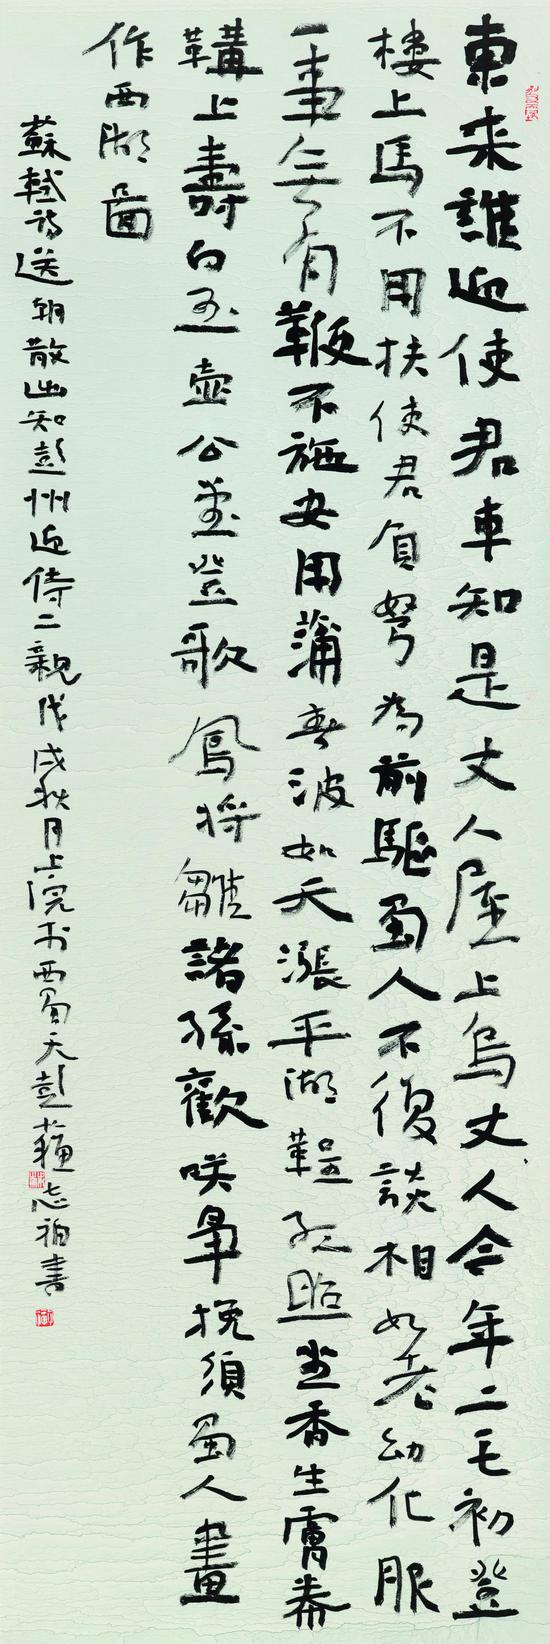 東来誰迎使君車知是丈人屋上烏丈人今年二毛初登
樓上馬不用扶使君負弩為前驅蜀人不復談相如老幼化服
一事無有鞭不施安用蒲春波如天漲平湖鞓紅照坐香生膚帣
韝上壽白玉壺公堂登歌鳳将雛諸孫歡咲爭挽須蜀人畫
作西湖圖
蘇軾詩送朝散出知彭州迎侍二親戊戌秋月上浣於西蜀天彭蘓志稻書